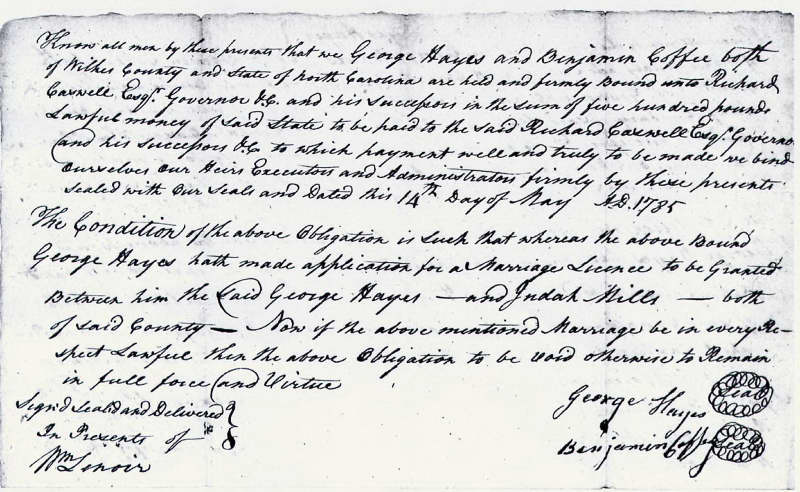 Know all men by these presents that we George Hayes and Benjamin Coffee both
of Wilkes County and State of North Carolina are held and firmly Bound unto Richard
Caswell Esqr. Governor &C. and his Successors in the Sum of five hundred pounds
Lawful money of Said State to be paid to the Said Richard Caswell Esqr. Governor
and his Successors &C to which payment well and truly to be made we bind
Ourselves Our Heirs Executors and Administrators firmly by these presents
Sealed with Our Seals and Dated this 14th Day of May A.D. 1785
The Condition of the above Obligation is Such that whereas the above Bound
George Hayes hath made application for a Marriage Licence to be Granted
Between him the Said George Hayes — and Judah Mills — both
of Said County — Now if the above mentioned Marriage be in every Re-
spect Lawful then the above Obligation to be void otherwise to Remain
in full force and Virtue
Sign'd Seal'd and Delivered
In Presents of
Wm Lenoir
George Hayes Seal
Benjamin Coffey Seal